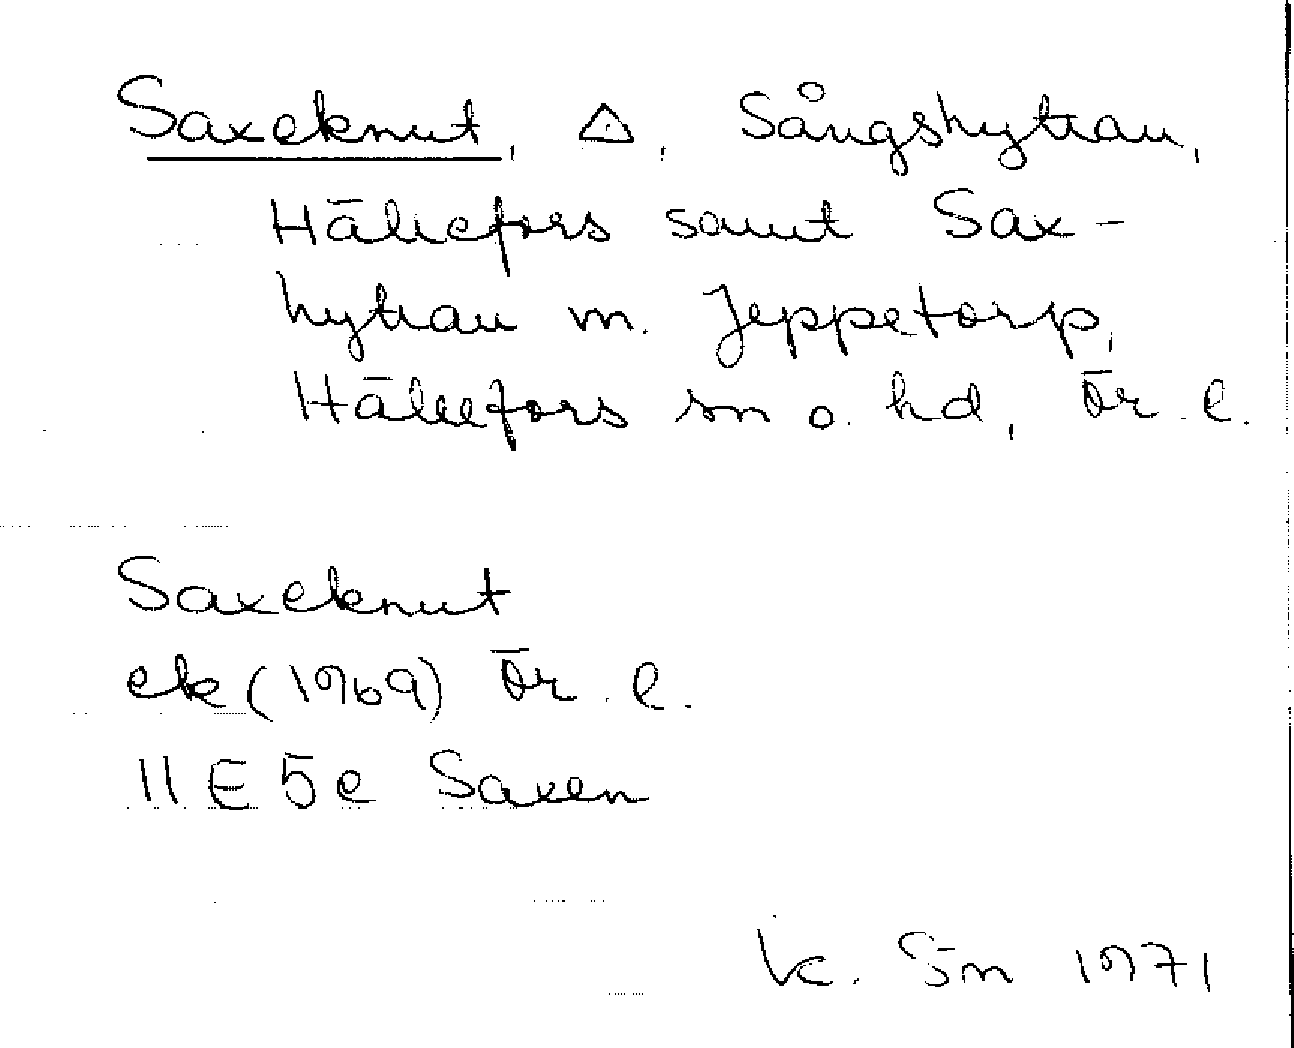 Saxeknut, △, Sångshyttan,
Hällefors samt Sax-
hyttan m. Jeppetorp,
Hällefors sn o. hd, Ör. l.
Saxeknut
ek (1969) Ör. l.
11 E 5 e Saxen
K. Sm 1971